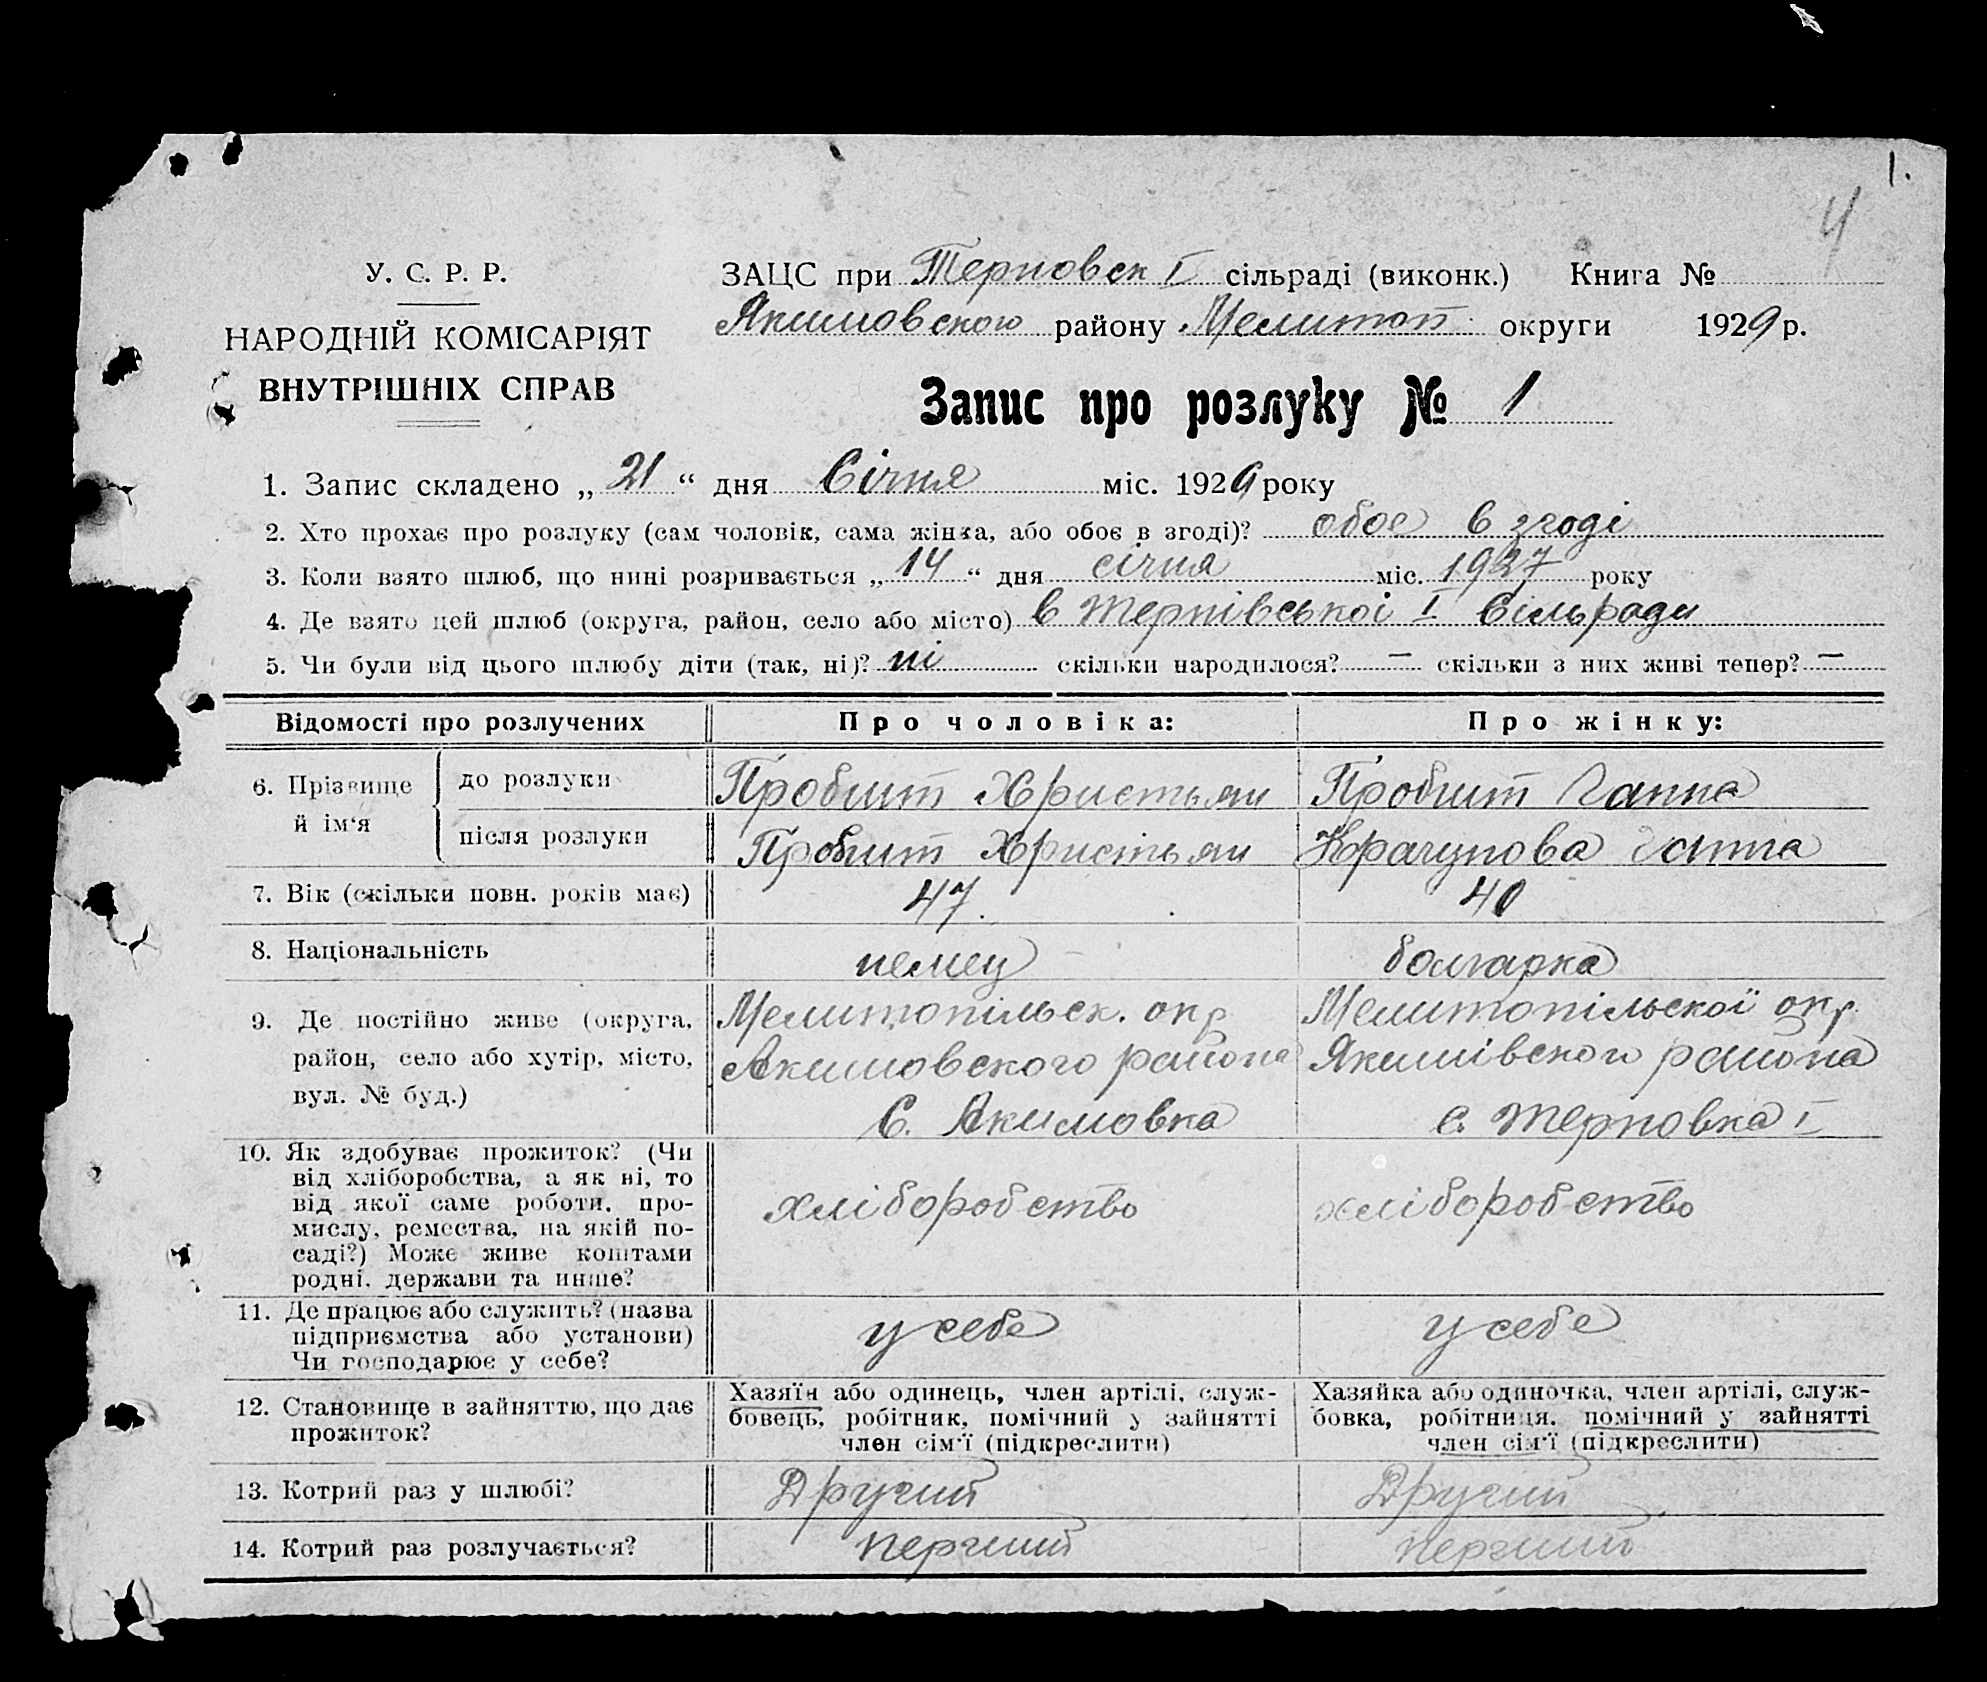 1.
4
У. С. Р. Р.
НАРОДНІЙ КОМІСАРІЯТ
ВНУТРІШНІХ СПРАВ
ЗАЦС при Терновск I сільраді (виконк.) Книга №
Якимовского району Мелитоп. округи 1929 р.
Запис про розлуку № 1
1. Запис складено „ 21 “ дня Січня міс. 1929 року
2. Хто прохає про розлуку (сам чоловік, сама жінка, або обоє в згоді)? обое в згоді
3. Коли взято шлюб, що нині розривається „ 14 “ дня січня міс. 1927 року
4. Де взято цей шлюб (округа, район, село або місто) в Тернівської I Сільради
5. Чи були від цього шлюбу діти (так, ні)? ні скільки народилося? — скільки з них живі тепер? —
Відомості про розлучених Про чоловіка: Про жінку:
6. Прізвище й ім‘я
до розлуки Пробшт Христьян Пробшт Ганна
після розлуки Пробшт Христьян Крагунова Ганна
7. Вік (скільки повн. років має) 47. 40
8. Національність немец болгарка
9. Де постійно живе (округа, район, село або хутір, місто, вул. № буд.)
Мелитопільск. окр
Акимовского района
С. Акимовка
Мелитопільскої окр.
Якимівского района
с. Терновка I
10. Як здобуває прожиток? (Чи
від хліборобства, а як ні, то
від якої саме роботи, про-
мислу, ремества, на якій по-
саді?) Може живе коштами
родні, держави та инше?
хліборобство хліборобство
11. Де працює або служить? (назва
підприємства або установи)
Чи господарює у себе?
у себе у себе
12. Становище в зайняттю, що дає
прожиток?
Хазяїн або одинець, член артілі, служ-
бовець, робітник, помічний у зайнятті
член сім‘ї (підкреслити)
Хазяйка або одиночка, член артілі, служ-
бовка, робітниця, помічний у зайнятті
член сім‘ї (підкреслити)
13. Котрий раз у шлюбі? Другий Другий
14. Котрий раз розлучається? перший перший